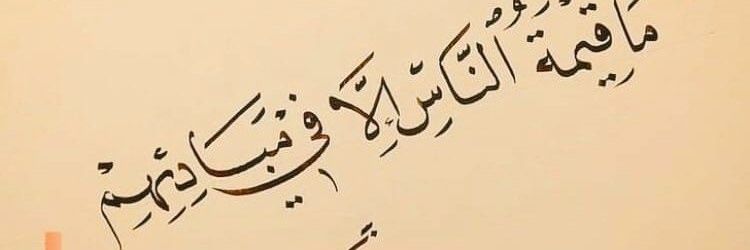 مَا قِيمَةُ النَّاسِ إِلَّا فِي مَبَادِئِهِمْ